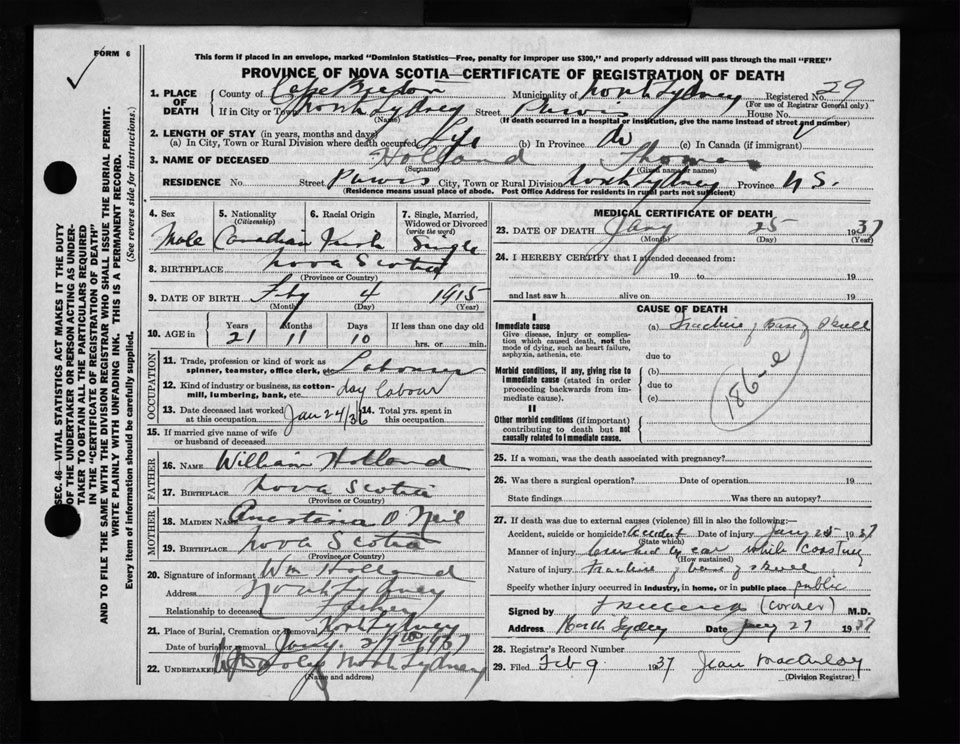 FORM 6
This form if placed in an envelope, marked "Dominion Statistics—Free, penalty for improper use $300," and properly addressed will pass through the mail "FREE"
PROVINCE OF NOVA SCOTIA—CERTIFICATE OF REGISTRATION OF DEATH
1. PLACE OF DEATH County of Cape Breton Municipality of North Sydney Registered No. 29
(For use of Registrar General only)
If in City or Town North Sydney Street House No.
(Name) (If death occurred in a hospital or institution, give the name instead of street and number)
2. LENGTH OF STAY (in years, months and days)
(a) In City, Town or Rural Division where death occurred Life (b) In Province do (c) In Canada (if immigrant)
3. NAME OF DECEASED Holland Thomas
(Surname) (Given name or names)
RESIDENCE No. Street City, Town or Rural Division North Sydney Province N S.
(Residence means usual place of abode. Post Office Address for residents in rural parts not sufficient)
SEC. 46—VITAL STATISTICS ACT MAKES IT THE DUTY
OF THE UNDERTAKER OR PERSON ACTING AS UNDER-
TAKER TO OBTAIN ALL THE PARTICULARS REQUIRED
IN THE "CERTIFICATE OF REGISTRATION OF DEATH"
AND TO FILE THE SAME WITH THE DIVISION REGISTRAR WHO SHALL ISSUE THE BURIAL PERMIT.
WRITE PLAINLY WITH UNFADING INK. THIS IS A PERMANENT RECORD.
Every item of information should be carefully supplied. (See reverse side for instructions.)
4. Sex Male
5. Nationality (Citizenship) Canadian
6. Racial Origin Irish
7. Single, Married, Widowed or Divorced (write the word) Single
8. BIRTHPLACE Nova Scotia
(Province or Country)
9. DATE OF BIRTH Feby 4 1915
(Month) (Day) (Year)
10. AGE in Years 21 Months 11 Days 10 If less than one day old hrs. or min.
OCCUPATION
11. Trade, profession or kind of work as spinner, teamster, office clerk, etc. Labourer
12. Kind of industry or business, as cotton-mill, lumbering, bank, etc. day labour
13. Date deceased last worked at this occupation Jan 24/36
14. Total yrs. spent in this occupation
15. If married give name of wife or husband of deceased
FATHER
16. NAME William Holland
17. BIRTHPLACE Nova Scotia
(Province or Country)
MOTHER
18. MAIDEN NAME Anastasia O Neil
19. BIRTHPLACE Nova Scotia
(Province or Country)
20. Signature of informant Wm Holland
Address North Sydney
Relationship to deceased Father
21. Place of Burial, Cremation or Removal North Sydney
Date of burial or removal Jany. 27th 1937
22. UNDERTAKER North Sydney
(Name and address)
MEDICAL CERTIFICATE OF DEATH
23. DATE OF DEATH Jany 25 1937
(Month) (Day) (Year)
24. I HEREBY CERTIFY that I attended deceased from:
19 to 19
and last saw h alive on 19
CAUSE OF DEATH
I
Immediate cause (a) Fracture of Base of Skull
Give disease, injury or complica-
tion which caused death, not the
mode of dying, such as heart failure,
asphyxia, asthenia, etc. due to
Morbid conditions, if any, giving rise to (b)
immediate cause (stated in order due to
proceeding backwards from im-
mediate cause). (c)
186-e
II
Other morbid conditions (if important)
contributing to death but not
causally related to immediate cause.
25. If a woman, was the death associated with pregnancy?
26. Was there a surgical operation? Date of operation 19
State findings Was there an autopsy?
27. If death was due to external causes (violence) fill in also the following:—
Accident, suicide or homicide? Accident Date of injury Jany 25 1937
(State which)
Manner of injury Crushed by car while coasting
(How sustained)
Nature of injury Fracture of base of skull
Specify whether injury occurred in industry, in home, or in public place public
Signed by (Coroner) M.D.
Address North Sydney Date Jany 27 1937
28. Registrar's Record Number
29. Filed Feb 9 1937 Jean
(Division Registrar)